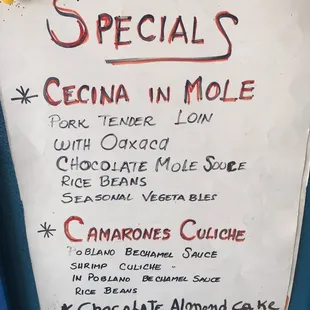 SPECIALS
* CECINA IN MOLE
PORK TENDER LOIN
WITH OAXACA
CHOCOLATE MOLE SOUCE
RICE BEANS
SEASONAL VEGETABLES
* CAMARONES CULICHE
POBLANO BECHAMEL SAUCE
SHRIMP CULICHE -
IN POBLANO BECHAMEL SAUCE
RICE BEANS
* CHOCOLATE ALMOND CAKE